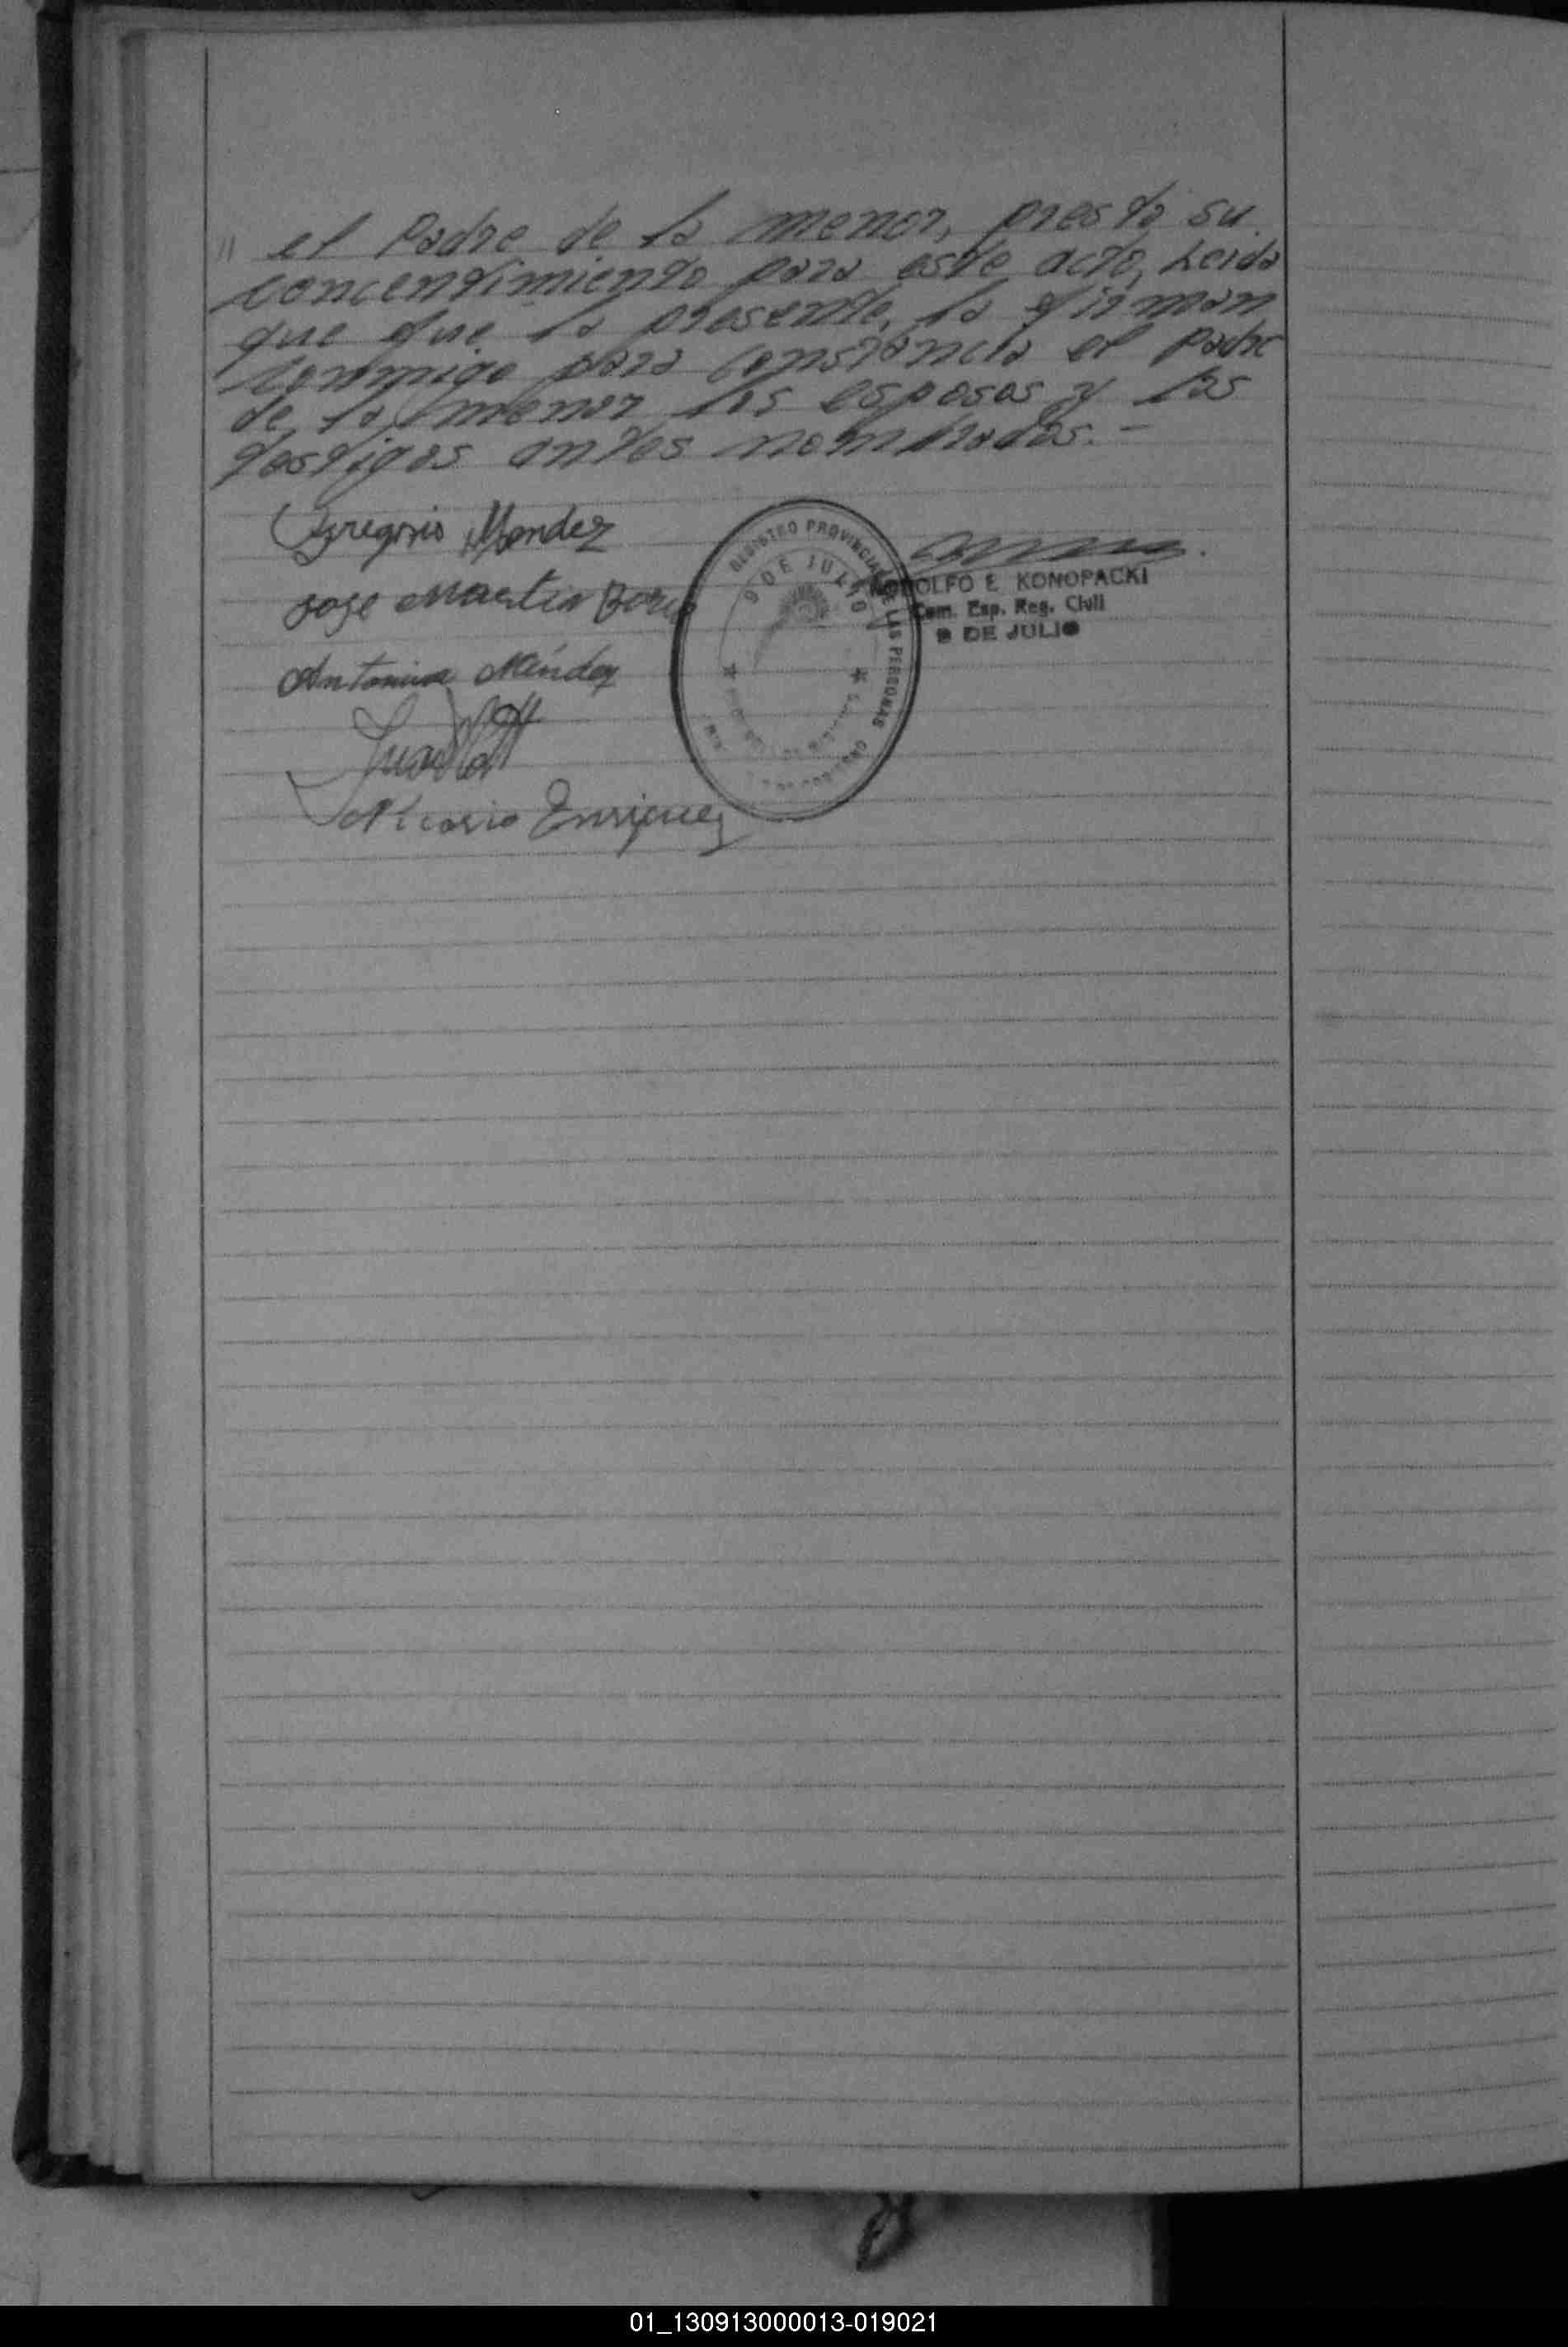 " el Padre de la menor, presto su
concentimiento para este acto, Leida
que fue la presente, la firman
conmigo para constancia el Padre
de la menor los esposos y los
testigos antes nombrados.-
Gregorio Mendez
Jose Martin
Antonina Méndez
Juan
Nicasio Enriquez
REGISTRO PROVINCIAL DE LAS PERSONAS
9 DE JULIO
RODOLFO E. KONOPACKI
Com. Esp. Reg. Civil
9 DE JULIO
01_130913000013-019021